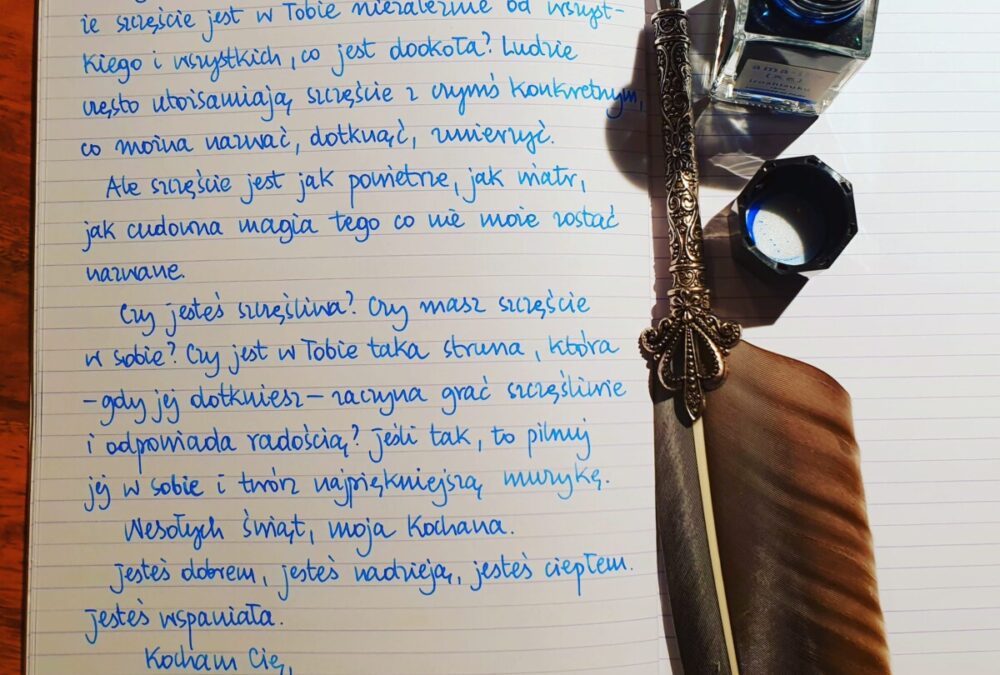 ie szczęście jest w Tobie niezależnie od wszyst-
kiego i wszystkich, co jest dookoła? Ludzie
często utożsamiają szczęście z czymś konkretnym,
co można nazwać, dotknąć, zmierzyć.
Ale szczęście jest jak powietrze, jak wiatr,
jak cudowna magia tego co nie może zostać
nazwane.
Czy jesteś szczęśliwa? Czy masz szczęście
w sobie? Czy jest w Tobie taka struna, która
– gdy jej dotkniesz – zaczyna grać szczęśliwie
i odpowiada radością? Jeśli tak, to pilnuj
jej w sobie i twórz najpiękniejszą muzykę.
Wesołych świąt, moja Kochana.
Jesteś dobrem, jesteś nadzieją, jesteś ciepłem.
Jesteś wspaniała.
Kocham Cię,
ama-iro